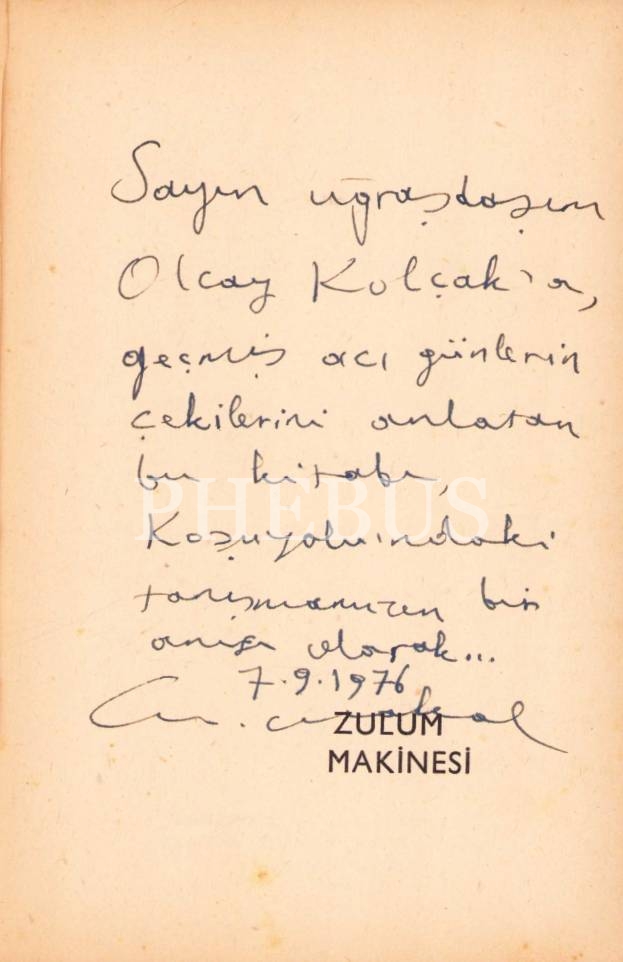 Sayın uğraşdaşım
Olcay Kolçak'a,
geçmiş acı günlerin
çekilerini anlatan
bu kitabı,
PHEBUS
Koşuyolu'ndaki
tanışmamızın bir
anısı olarak...
7.9.1976
ZULÜM
MAKİNESİ